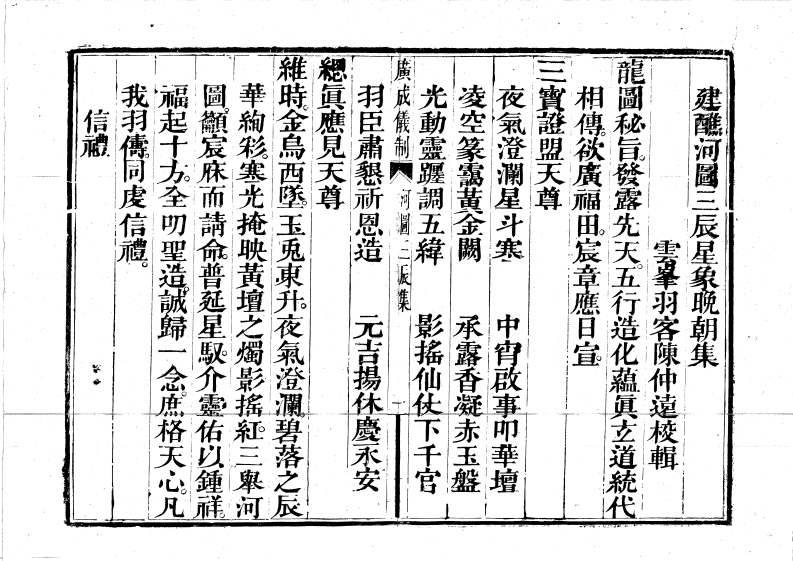 建醮河圖三辰星象晚朝集
雲峯羽客陳仲遠校輯
龍圖秘旨。發露先天。五行造化蘊眞立道統代
相傳。欲廣福田。宸章應日宣。
三寶證盟天尊
夜氣澄瀾星斗寒　中宵啟事叩華壇
凌空篆靄黃金闕　承露香凝赤玉盤
光動靈躔調五緯　影搖仙仗下千官
羽臣肅懇祈恩造　元吉揚休慶永安
廣成儀制　河圖三辰集　一
總眞應見天尊
維時。金烏西墜。玉兎東升。夜氣澄瀾。碧落之辰
華絢彩。寒光掩映黃壇之燭影搖紅。三舉河
圖。籲宸庥而請命。普延星馭。介靈佑以鍾祥。
福起十方。全叨聖造。誠歸一念。庶格天心。凡
我羽儔。同虔信禮。
信禮